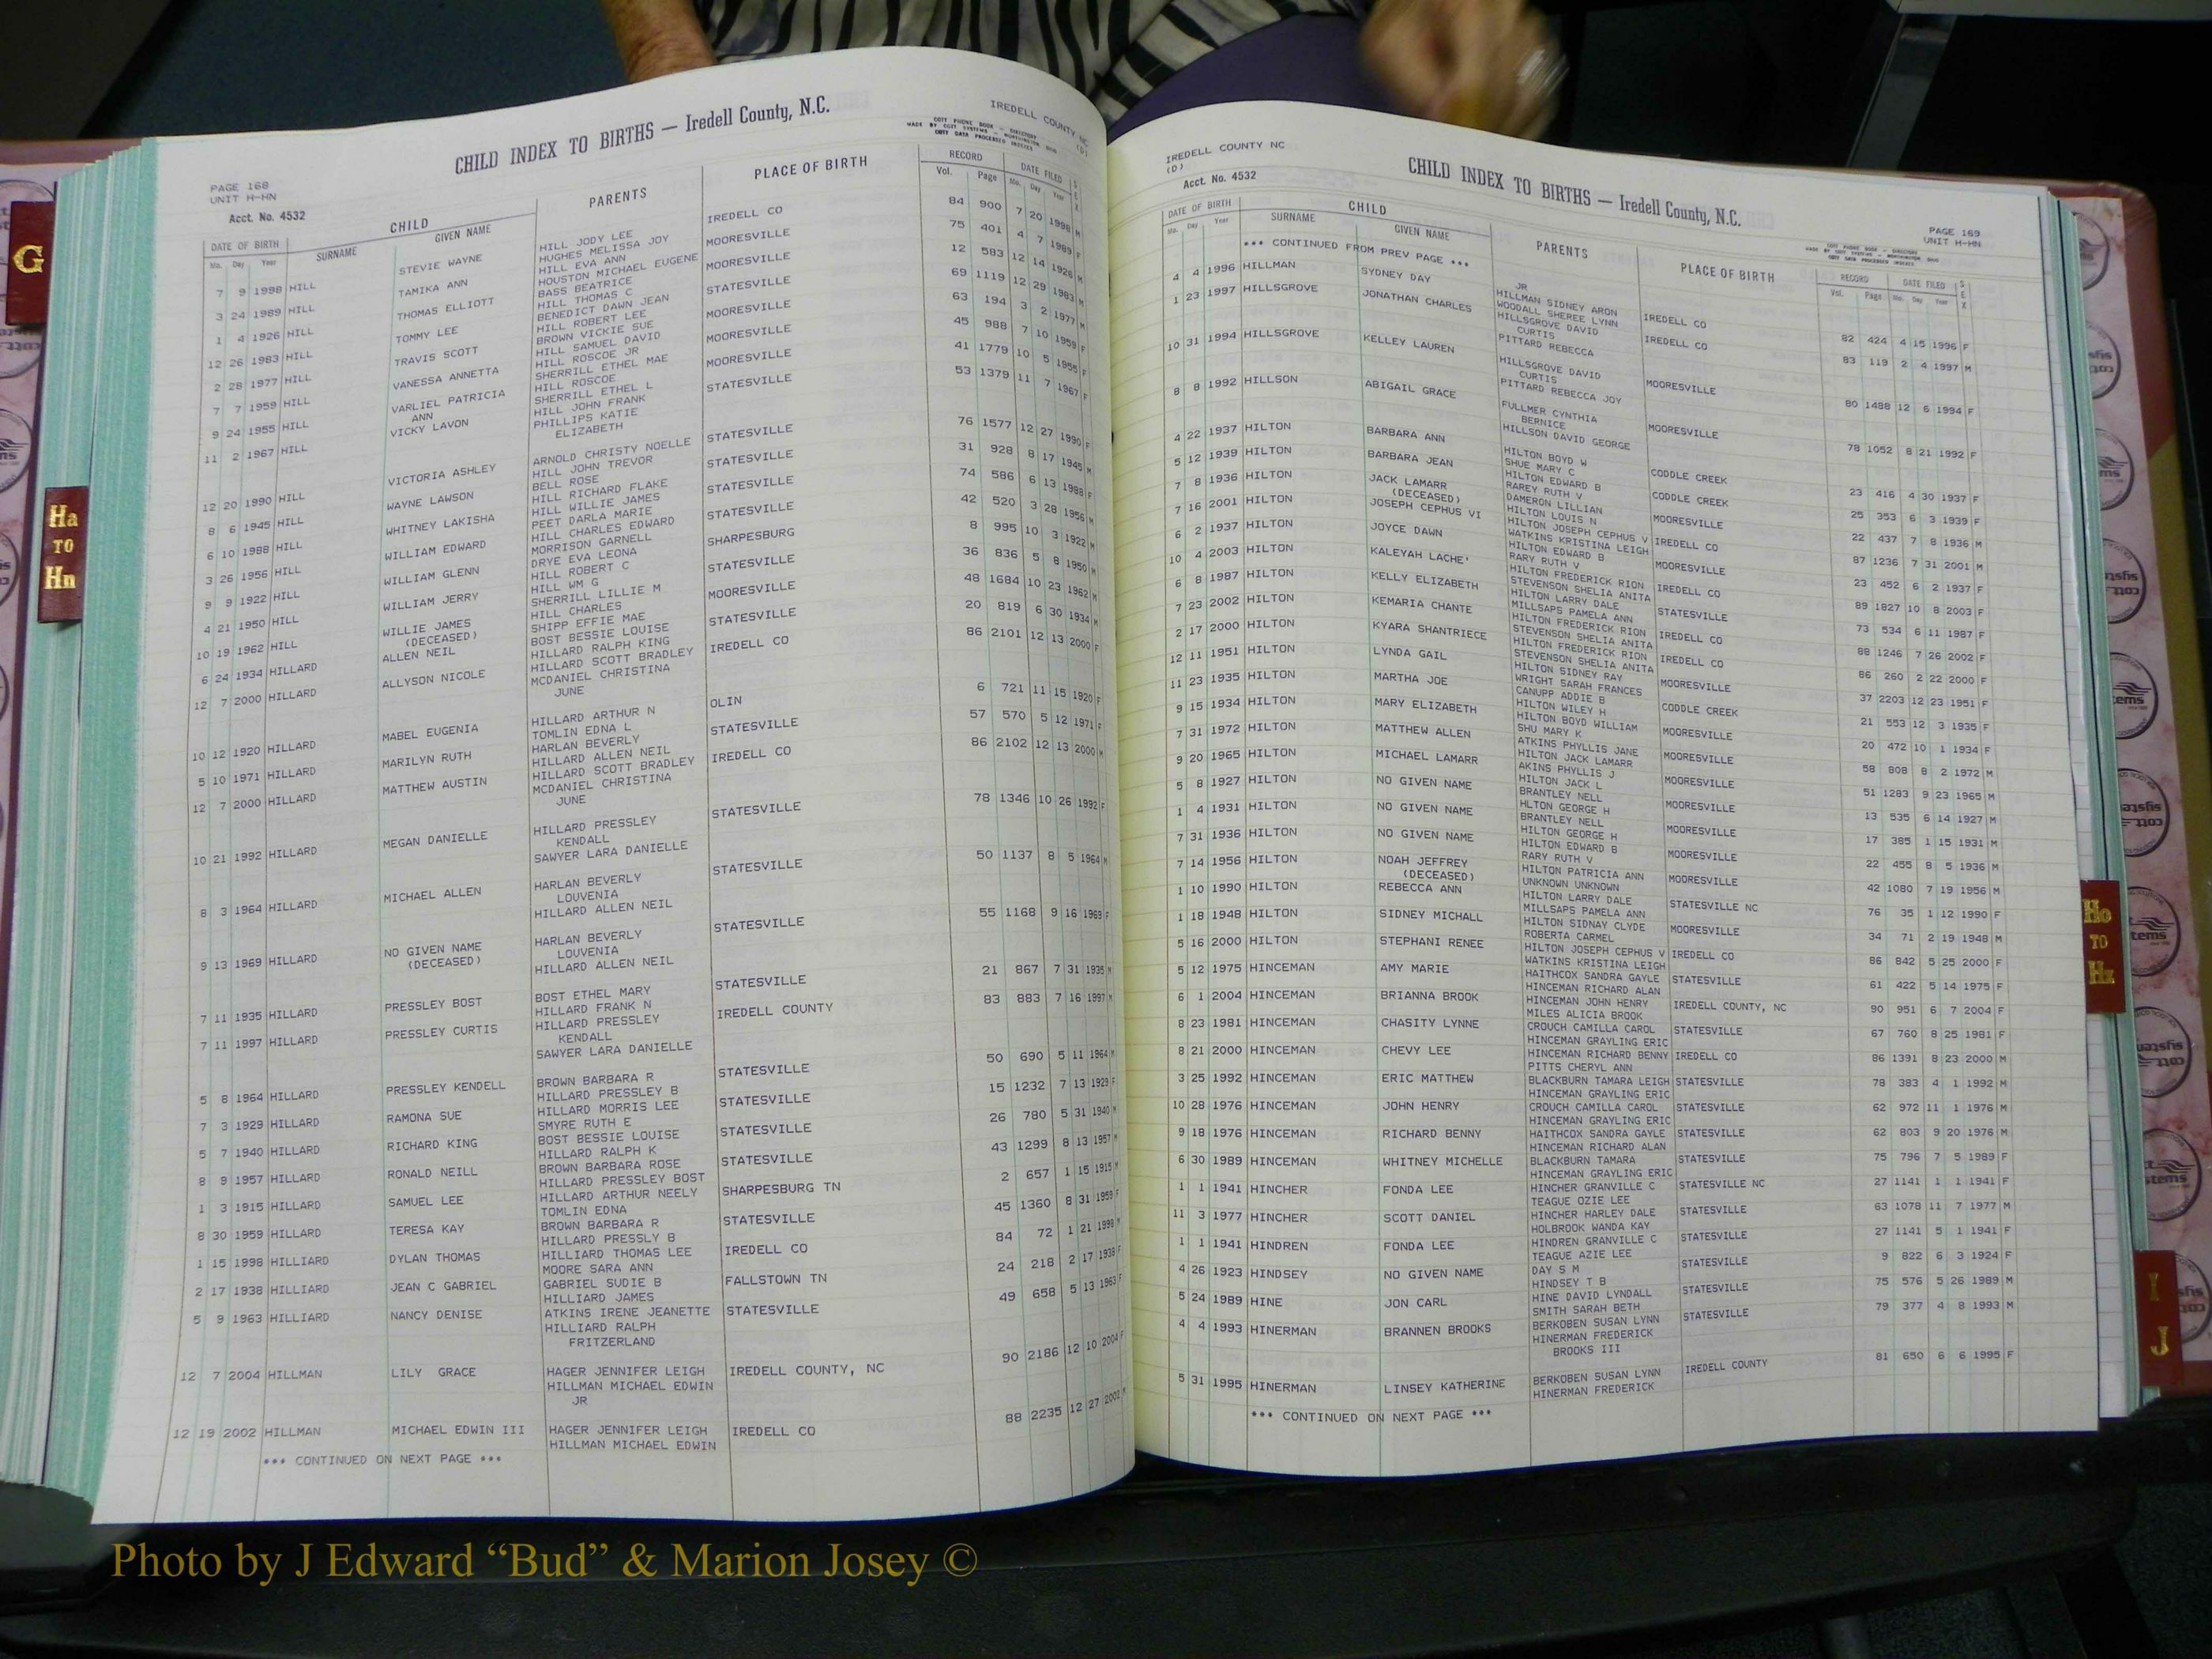 IREDELL COUNTY NC
(D)
CHILD INDEX TO BIRTHS — Iredell County, N.C.
COTT PHONE BOOK - DIRECTORY
MADE BY COTT SYSTEMS - WORTHINGTON, OHIO
COTT DATA PROCESSED INDEXES
PAGE 168
UNIT H-HN
Acct. No. 4532
DATE OF BIRTH CHILD PARENTS PLACE OF BIRTH RECORD DATE FILED SEX
Mo. Day Year SURNAME GIVEN NAME Vol. Page Mo. Day Year
7 9 1998 HILL STEVIE WAYNE HILL JODY LEE IREDELL CO 84 900 7 20 1998 M
HUGHES MELISSA JOY
3 24 1989 HILL TAMIKA ANN HILL EVA ANN MOORESVILLE 75 401 4 7 1989 F
HOUSTON MICHAEL EUGENE
1 4 1926 HILL THOMAS ELLIOTT BASS BEATRICE MOORESVILLE 12 583 12 14 1926 M
HILL THOMAS C
12 26 1983 HILL TOMMY LEE BENEDICT DAWN JEAN STATESVILLE 69 1119 12 29 1983 M
HILL ROBERT LEE
2 28 1977 HILL TRAVIS SCOTT BROWN VICKIE SUE MOORESVILLE 63 194 3 2 1977 M
HILL SAMUEL DAVID
7 7 1959 HILL VANESSA ANNETTA HILL ROSCOE JR MOORESVILLE 45 988 7 10 1959 F
SHERRILL ETHEL MAE
9 24 1955 HILL VARLIEL PATRICIA HILL ROSCOE MOORESVILLE 41 1779 10 5 1955 F
ANN SHERRILL ETHEL L
11 2 1967 HILL VICKY LAVON HILL JOHN FRANK STATESVILLE 53 1379 11 7 1967 F
PHILLIPS KATIE
ELIZABETH
12 20 1990 HILL VICTORIA ASHLEY ARNOLD CHRISTY NOELLE STATESVILLE 76 1577 12 27 1990 F
HILL JOHN TREVOR
8 6 1945 HILL WAYNE LAWSON BELL ROSE STATESVILLE 31 928 8 17 1945 M
HILL RICHARD FLAKE
6 10 1988 HILL WHITNEY LAKISHA HILL WILLIE JAMES STATESVILLE 74 586 6 13 1988 F
PEET DARLA MARIE
3 26 1956 HILL WILLIAM EDWARD HILL CHARLES EDWARD STATESVILLE 42 520 3 28 1956 M
MORRISON GARNELL
9 9 1922 HILL WILLIAM GLENN DRYE EVA LEONA SHARPESBURG 8 995 10 3 1922 M
HILL ROBERT C
4 21 1950 HILL WILLIAM JERRY HILL WM G STATESVILLE 36 836 5 8 1950 M
SHERRILL LILLIE M
10 19 1962 HILL WILLIE JAMES HILL CHARLES MOORESVILLE 48 1684 10 23 1962 M
(DECEASED) SHIPP EFFIE MAE
6 24 1934 HILLARD ALLEN NEIL BOST BESSIE LOUISE STATESVILLE 20 819 6 30 1934 M
HILLARD RALPH KING
12 7 2000 HILLARD ALLYSON NICOLE HILLARD SCOTT BRADLEY IREDELL CO 86 2101 12 13 2000 F
MCDANIEL CHRISTINA
JUNE
10 12 1920 HILLARD MABEL EUGENIA HILLARD ARTHUR N OLIN 6 721 11 15 1920 F
TOMLIN EDNA L
5 10 1971 HILLARD MARILYN RUTH HARLAN BEVERLY STATESVILLE 57 570 5 12 1971 F
HILLARD ALLEN NEIL
12 7 2000 HILLARD MATTHEW AUSTIN HILLARD SCOTT BRADLEY IREDELL CO 86 2102 12 13 2000 M
MCDANIEL CHRISTINA
JUNE
10 21 1992 HILLARD MEGAN DANIELLE HILLARD PRESSLEY STATESVILLE 78 1346 10 26 1992 F
KENDALL
SAWYER LARA DANIELLE
8 3 1964 HILLARD MICHAEL ALLEN HARLAN BEVERLY STATESVILLE 50 1137 8 5 1964 M
LOUVENIA
HILLARD ALLEN NEIL
9 13 1969 HILLARD NO GIVEN NAME HARLAN BEVERLY STATESVILLE 55 1168 9 16 1969 F
(DECEASED) LOUVENIA
HILLARD ALLEN NEIL
7 11 1935 HILLARD PRESSLEY BOST BOST ETHEL MARY STATESVILLE 21 867 7 31 1935 M
HILLARD FRANK N
7 11 1997 HILLARD PRESSLEY CURTIS HILLARD PRESSLEY IREDELL COUNTY 83 883 7 16 1997 M
KENDALL
SAWYER LARA DANIELLE
5 8 1964 HILLARD PRESSLEY KENDELL BROWN BARBARA R STATESVILLE 50 690 5 11 1964 M
HILLARD PRESSLEY B
7 3 1929 HILLARD RAMONA SUE HILLARD MORRIS LEE STATESVILLE 15 1232 7 13 1929 F
SMYRE RUTH E
5 7 1940 HILLARD RICHARD KING BOST BESSIE LOUISE STATESVILLE 26 780 5 31 1940 M
HILLARD RALPH K
8 9 1957 HILLARD RONALD NEILL BROWN BARBARA ROSE STATESVILLE 43 1299 8 13 1957 M
HILLARD PRESSLEY BOST
1 3 1915 HILLARD SAMUEL LEE HILLARD ARTHUR NEELY SHARPESBURG TN 2 657 1 15 1915 M
TOMLIN EDNA
8 30 1959 HILLARD TERESA KAY BROWN BARBARA R STATESVILLE 45 1360 8 31 1959 F
HILLARD PRESSLY B
1 15 1998 HILLIARD DYLAN THOMAS HILLIARD THOMAS LEE IREDELL CO 84 72 1 21 1998 M
MOORE SARA ANN
2 17 1938 HILLIARD JEAN C GABRIEL GABRIEL SUDIE B FALLSTOWN TN 24 218 2 17 1938 F
HILLIARD JAMES
5 9 1963 HILLIARD NANCY DENISE ATKINS IRENE JEANETTE STATESVILLE 49 658 5 13 1963 F
HILLIARD RALPH
FRITZERLAND
12 7 2004 HILLMAN LILY GRACE HAGER JENNIFER LEIGH IREDELL COUNTY, NC 90 2186 12 10 2004 F
HILLMAN MICHAEL EDWIN
JR
12 19 2002 HILLMAN MICHAEL EDWIN III HAGER JENNIFER LEIGH IREDELL CO 88 2235 12 27 2002 M
HILLMAN MICHAEL EDWIN
*** CONTINUED ON NEXT PAGE ***
IREDELL COUNTY NC
(D)
Acct. No. 4532
CHILD INDEX TO BIRTHS — Iredell County, N.C.
PAGE 169
UNIT H-HN
COTT PHONE BOOK - DIRECTORY
MADE BY COTT SYSTEMS - WORTHINGTON, OHIO
COTT DATA PROCESSED INDEXES
DATE OF BIRTH CHILD PARENTS PLACE OF BIRTH RECORD DATE FILED SEX
Mo. Day Year SURNAME GIVEN NAME Vol. Page Mo. Day Year
*** CONTINUED FROM PREV PAGE ***
JR
4 4 1996 HILLMAN SYDNEY DAY HILLMAN SIDNEY ARON IREDELL CO 82 424 4 15 1996 F
WOODALL SHEREE LYNN
1 23 1997 HILLSGROVE JONATHAN CHARLES HILLSGROVE DAVID IREDELL CO 83 119 2 4 1997 M
CURTIS
PITTARD REBECCA
10 31 1994 HILLSGROVE KELLEY LAUREN HILLSGROVE DAVID MOORESVILLE 80 1488 12 6 1994 F
CURTIS
PITTARD REBECCA JOY
8 8 1992 HILLSON ABIGAIL GRACE FULLMER CYNTHIA MOORESVILLE 78 1052 8 21 1992 F
BERNICE
HILLSON DAVID GEORGE
4 22 1937 HILTON BARBARA ANN HILTON BOYD W CODDLE CREEK 23 416 4 30 1937 F
SHUE MARY C
5 12 1939 HILTON BARBARA JEAN HILTON EDWARD B CODDLE CREEK 25 353 6 3 1939 F
RAREY RUTH V
7 8 1936 HILTON JACK LAMARR DAMERON LILLIAN MOORESVILLE 22 437 7 8 1936 M
(DECEASED) HILTON LOUIS N
7 16 2001 HILTON JOSEPH CEPHUS VI HILTON JOSEPH CEPHUS V IREDELL CO 87 1236 7 31 2001 M
WATKINS KRISTINA LEIGH
6 2 1937 HILTON JOYCE DAWN HILTON EDWARD B MOORESVILLE 23 452 6 2 1937 F
RARY RUTH V
10 4 2003 HILTON KALEYAH LACHE' HILTON FREDERICK RION IREDELL CO 89 1827 10 8 2003 F
STEVENSON SHELIA ANITA
6 8 1987 HILTON KELLY ELIZABETH HILTON LARRY DALE STATESVILLE 73 534 6 11 1987 F
MILLSAPS PAMELA ANN
7 23 2002 HILTON KEMARIA CHANTE HILTON FREDERICK RION IREDELL CO 88 1246 7 26 2002 F
STEVENSON SHELIA ANITA
2 17 2000 HILTON KYARA SHANTRIECE HILTON FREDERICK RION IREDELL CO 86 260 2 22 2000 F
STEVENSON SHELIA ANITA
12 11 1951 HILTON LYNDA GAIL HILTON SIDNEY RAY MOORESVILLE 37 2203 12 23 1951 F
WRIGHT SARAH FRANCES
11 23 1935 HILTON MARTHA JOE CANUPP ADDIE B CODDLE CREEK 21 553 12 3 1935 F
HILTON WILEY H
9 15 1934 HILTON MARY ELIZABETH HILTON BOYD WILLIAM MOORESVILLE 20 472 10 1 1934 F
SHU MARY K
7 31 1972 HILTON MATTHEW ALLEN ATKINS PHYLLIS JANE MOORESVILLE 58 808 8 2 1972 M
HILTON JACK LAMARR
9 20 1965 HILTON MICHAEL LAMARR AKINS PHYLLIS J MOORESVILLE 51 1283 9 23 1965 M
HILTON JACK L
5 8 1927 HILTON NO GIVEN NAME BRANTLEY NELL MOORESVILLE 13 535 6 14 1927 M
HLTON GEORGE H
1 4 1931 HILTON NO GIVEN NAME BRANTLEY NELL MOORESVILLE 17 385 1 15 1931 M
HILTON GEORGE H
7 31 1936 HILTON NO GIVEN NAME HILTON EDWARD B MOORESVILLE 22 455 8 5 1936 M
RARY RUTH V
7 14 1956 HILTON NOAH JEFFREY HILTON PATRICIA ANN MOORESVILLE 42 1080 7 19 1956 M
(DECEASED) UNKNOWN UNKNOWN
1 10 1990 HILTON REBECCA ANN HILTON LARRY DALE STATESVILLE NC 76 35 1 12 1990 F
MILLSAPS PAMELA ANN
1 18 1948 HILTON SIDNEY MICHALL HILTON SIDNAY CLYDE MOORESVILLE 34 71 2 19 1948 M
ROBERTA CARMEL
5 16 2000 HILTON STEPHANI RENEE HILTON JOSEPH CEPHUS V IREDELL CO 86 842 5 25 2000 F
WATKINS KRISTINA LEIGH
5 12 1975 HINCEMAN AMY MARIE HAITHCOX SANDRA GAYLE STATESVILLE 61 422 5 14 1975 F
HINCEMAN RICHARD ALAN
6 1 2004 HINCEMAN BRIANNA BROOK HINCEMAN JOHN HENRY IREDELL COUNTY, NC 90 951 6 7 2004 F
MILES ALICIA BROOK
8 23 1981 HINCEMAN CHASITY LYNNE CROUCH CAMILLA CAROL STATESVILLE 67 760 8 25 1981 F
HINCEMAN GRAYLING ERIC
8 21 2000 HINCEMAN CHEVY LEE HINCEMAN RICHARD BENNY IREDELL CO 86 1391 8 23 2000 M
PITTS CHERYL ANN
3 25 1992 HINCEMAN ERIC MATTHEW BLACKBURN TAMARA LEIGH STATESVILLE 78 383 4 1 1992 M
HINCEMAN GRAYLING ERIC
10 28 1976 HINCEMAN JOHN HENRY CROUCH CAMILLA CAROL STATESVILLE 62 972 11 1 1976 M
HINCEMAN GRAYLING ERIC
9 18 1976 HINCEMAN RICHARD BENNY HAITHCOX SANDRA GAYLE STATESVILLE 62 803 9 20 1976 M
HINCEMAN RICHARD ALAN
6 30 1989 HINCEMAN WHITNEY MICHELLE BLACKBURN TAMARA STATESVILLE 75 796 7 5 1989 F
HINCEMAN GRAYLING ERIC
1 1 1941 HINCHER FONDA LEE HINCHER GRANVILLE C STATESVILLE NC 27 1141 1 1 1941 F
TEAGUE OZIE LEE
11 3 1977 HINCHER SCOTT DANIEL HINCHER HARLEY DALE STATESVILLE 63 1078 11 7 1977 M
HOLBROOK WANDA KAY
1 1 1941 HINDREN FONDA LEE HINDREN GRANVILLE C STATESVILLE 27 1141 5 1 1941 F
TEAGUE AZIE LEE
4 26 1923 HINDSEY NO GIVEN NAME DAY S M STATESVILLE 9 822 6 3 1924 F
HINDSEY T B
5 24 1989 HINE JON CARL HINE DAVID LYNDALL STATESVILLE 75 576 5 26 1989 M
SMITH SARAH BETH
4 4 1993 HINERMAN BRANNEN BROOKS BERKOBEN SUSAN LYNN STATESVILLE 79 377 4 8 1993 M
HINERMAN FREDERICK
BROOKS III
5 31 1995 HINERMAN LINSEY KATHERINE BERKOBEN SUSAN LYNN IREDELL COUNTY 81 650 6 6 1995 F
HINERMAN FREDERICK
*** CONTINUED ON NEXT PAGE ***
G
Ha
TO
Hn
Ho
TO
Hz
I
J
Photo by J Edward “Bud” & Marion Josey ©